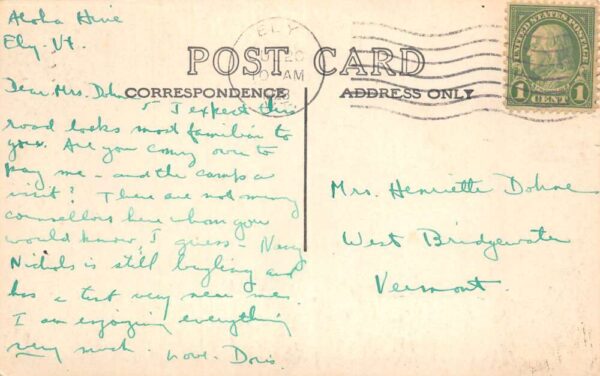 Aloha Hive
Ely. Vt.
Dear Mrs. Dohne
I expect this
road looks most familiar to
you. Are you coming over to
pay me - and the camp a
visit? There are not many
counsellors here whom you
would know, I guess - Nancy
Nichols is still bugling and
has a tent very near me.
I am enjoying everything
very much. Love. Doris.
POST CARD
CORRESPONDENCE
ADDRESS ONLY
ELY
10 AM
UNITED STATES POSTAGE
1 CENT 1
Mrs. Henriette Dohne
West Bridgewater
Vermont.